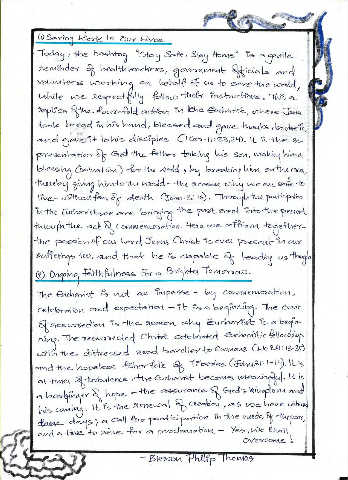 (i) Saving Work in Our Lives
Today, the hashtag "Stay Safe, Stay Home" is a gentle
reminder of healthworkers, government officials and
volunteers working on behalf of us to save the world,
while we respectfully follow their instructions. This is a
of the fourfold action in the Eucharist, where Jesus
took bread in his hand, blessed and gave thanks, broke it
and gave it to his disciples (1 Cor. 11:23,24). It is the re-
presentation of God the father taking his son, making him a
blessing for the world, by breaking him on the cross,
thereby giving him to the world - the reason why we are able to
live without fear of death. Through the participation
in the Eucharist we are bringing the past and into the present
through the act of commemoration. Here we affirm together
the passion of our Lord Jesus Christ is ever present in our
sufferings too, and that he is capable of leading us through
(ii) Ongoing Faithfulness for a Brighter Tomorrow
The Eucharist is not an impasse - by commemoration,
celebration and expectation - it is a beginning. The core
of resurrection is the reason why Eucharist is a begin-
ning. The resurrected Christ celebrated Eucharistic fellowship
with the distressed road traveller to Emmaus (Lk 24:13-35)
and the hopeless fishermen of Tiberias (John 21:1-14). It is
at times of turbulence the Eucharist becomes meaningful. It is
a harbinger of hope - the assurance of God's kingdom and
his coming. It is the renewal of creation, as we have witnessed
these days; a call for participation in the needs of others
and a time to arise for a proclamation - Yes, We Shall
Overcome!
- Blesson Philip Thomas